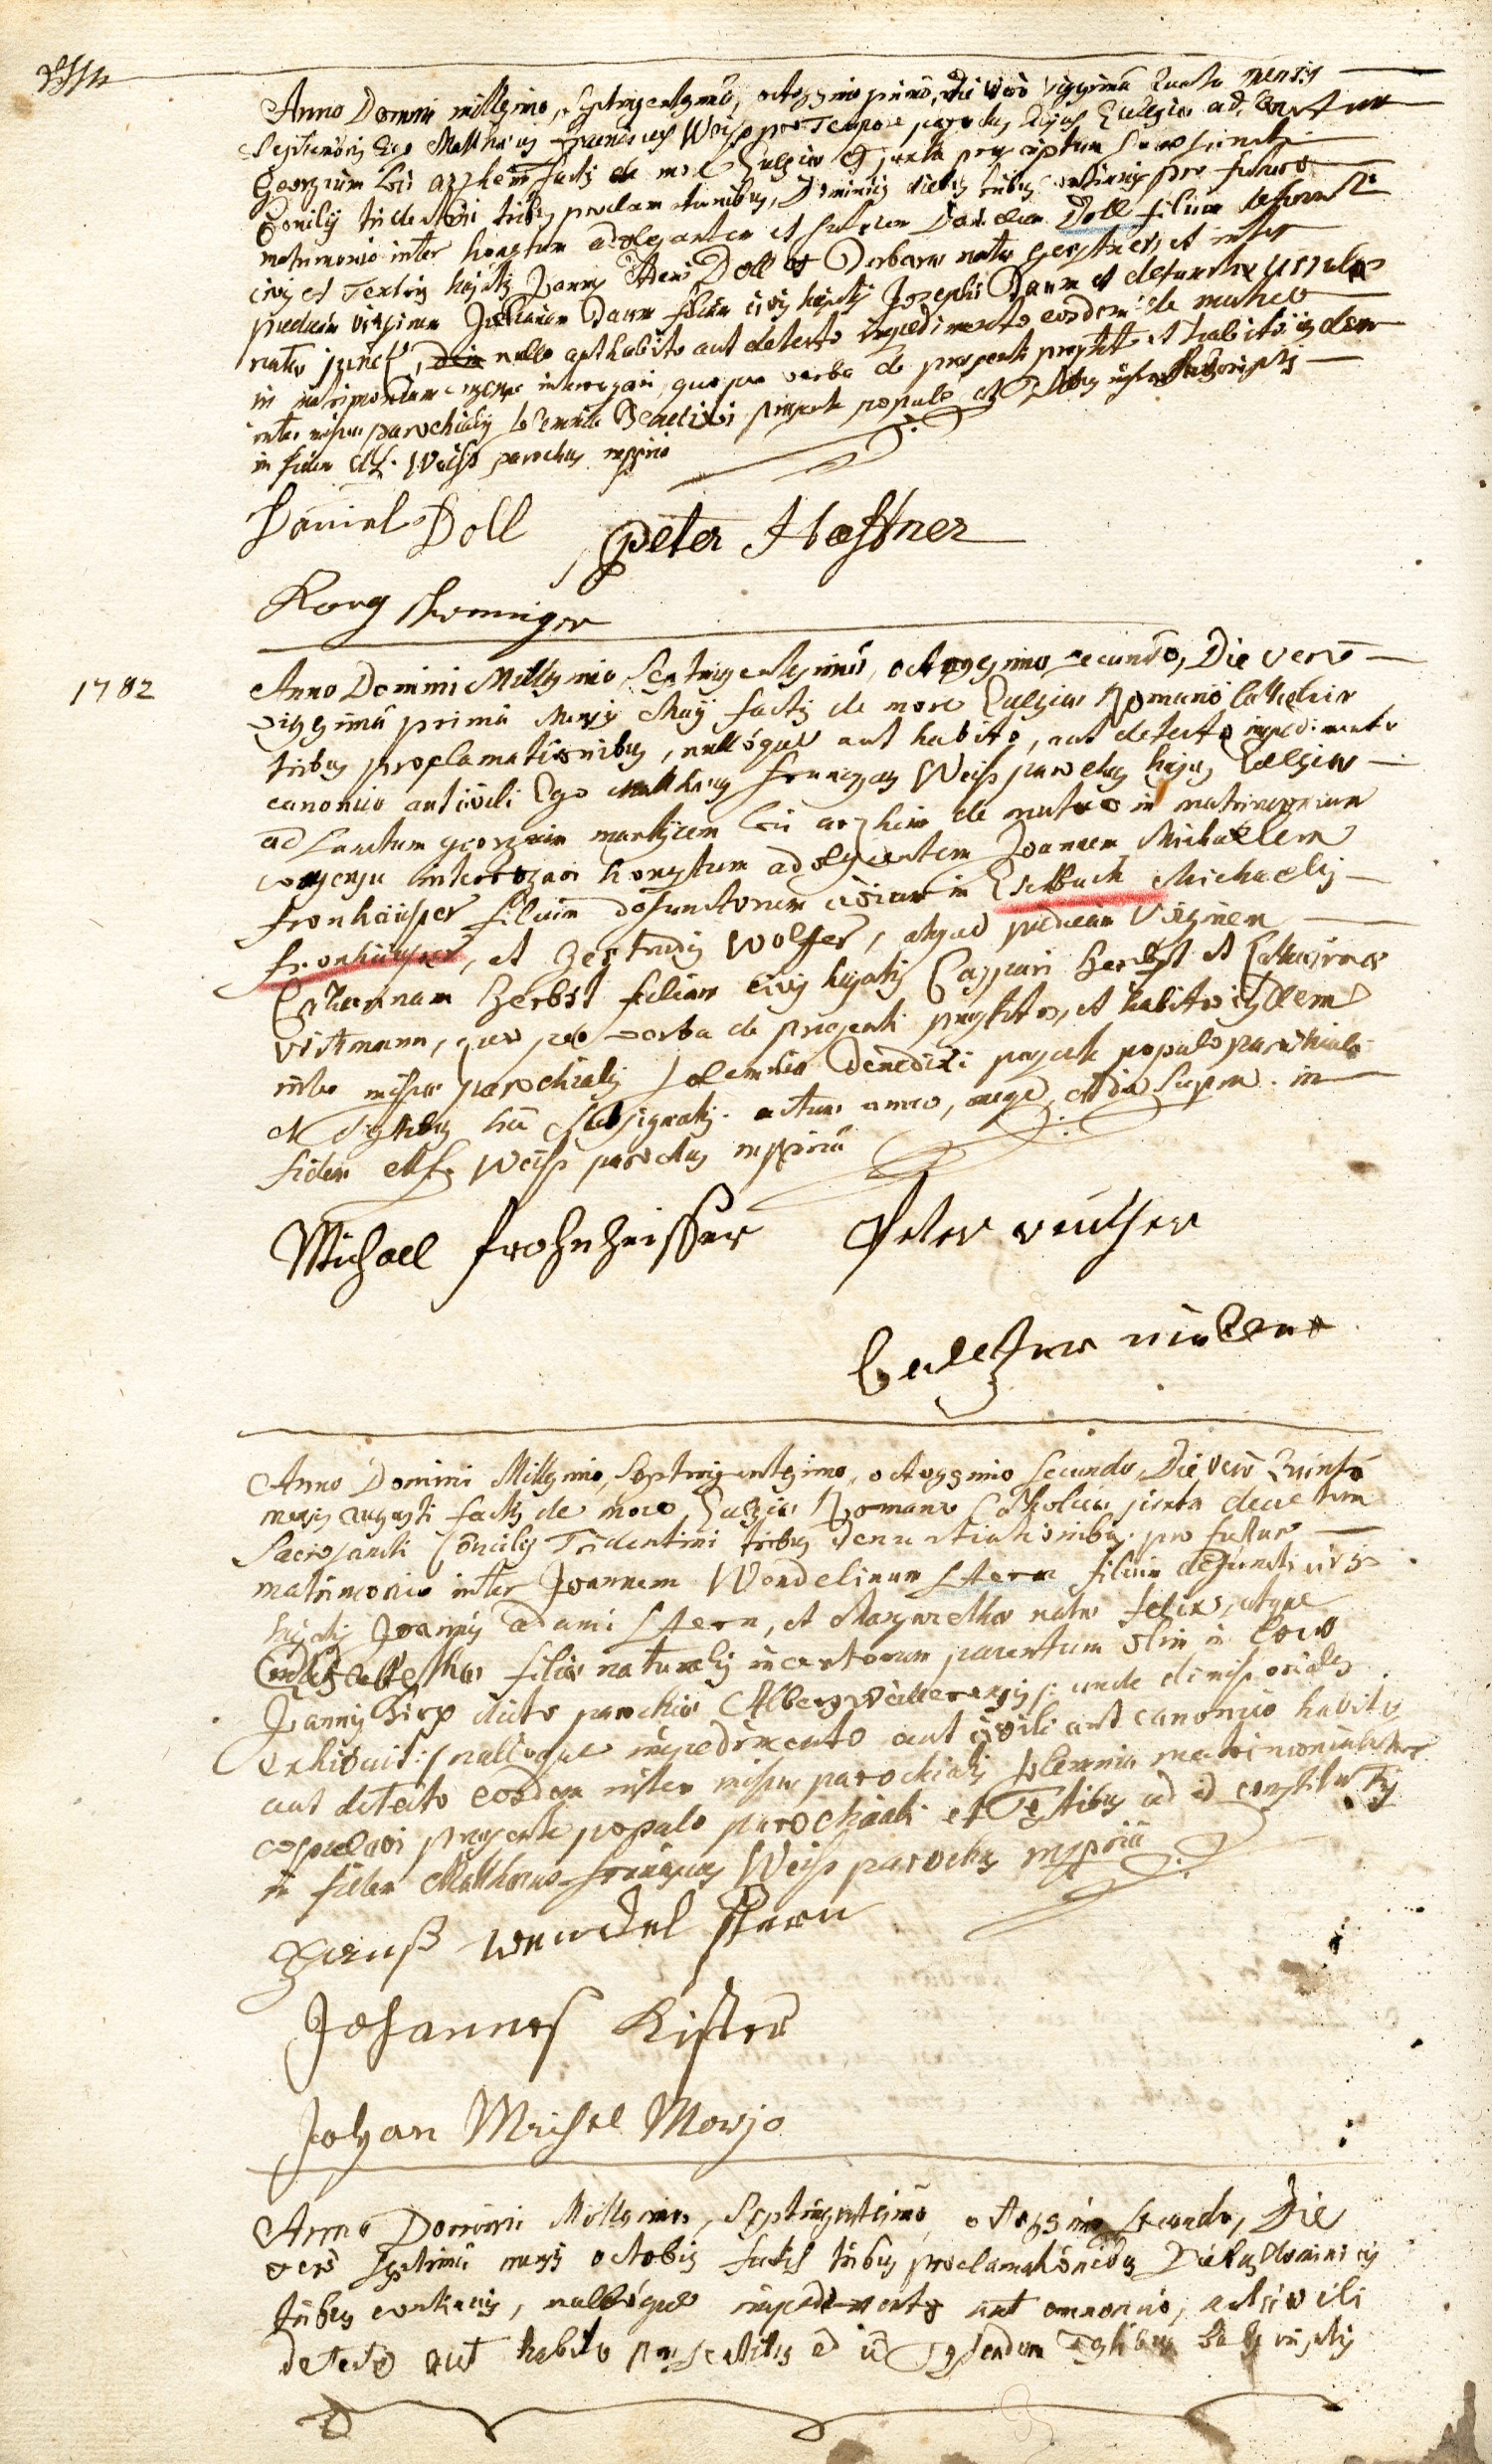 Anno Domini millesimo, Septingentesimo, octogesimo primo, die vero vigesima quarta mensis
Septembris Ego Matthaeus Franciscus Weiss pro Tempore parochus hujus Ecclesiae ad Sanctum
Georgium loci arzheim factis de more Ecclesiae et juxta praeceptum Sacrosancti
Concilij tridentini tribus proclamationibus, Dominicis diebus tribus continuis pro futuro
matrimonio inter honestum adolescentem et Doll filium defuncti
civis et Textoris hujatis Joannis Doll et Barbarae natae gerstner, et inter
pudicam virginem Julianam Daum filiam civis hujatis Josephi Daum et defunctae Ursulae
natae nullo aut habito aut detecto impedimento eosdem de mutuo
in matrimonium consensu interrogavi, quo per verba de praesenti praestito et habito iisdem
inter missae parochialis solemnia Benedixi praesente populo et Testibus infra subscriptis
in fidem M.F. Weiss parochus mppria
Daniel Doll Peter Hoffner
1782
Anno Domini Millesimo Septingentesimo, octogesimo secundo, Die vero
vigesima prima mensis Maij factis de more Ecclesiae Romano Catholicae
tribus proclamationibus, nulloque aut habito, aut detecto impedimento
canonico aut civili Ego Matthaeus Franciscus Weiss parochus hujus Ecclesiae
ad Sanctum georgium martyrem loci arzheim de mutuo in matrimonium
consensu interrogavi honestum adolescentem Joannem Michaelem
fronhäusser filium defunctorum civium in Eschbach Michaelis
fronhäusser, et gertrudis Wolffer, atque pudicam Virginem
Zerbst filiam civis hujatis Caspari Zerbst et Catharinae
Vistmann, quo per verba de praesenti praestito, et habito iisdem
inter missae parochialis solemnia Benedixi praesente populo parochiali
et Testibus hic subsignatis. actum anno, mense, et die supra. in
fidem M.F. Weiss parochus mppria
Michael frohnheisser Peter
Anno Domini Millesimo, Septingentesimo, octogesimo secundo, Die vero Quinta
mensis augusti factis de more Ecclesiae Romano Catholicae, juxta decretum
Sacrosancti Concilij Tridentini tribus denuntiationibus pro futuro
matrimonio inter Joannem Wendelinum Stern filium defuncti civis
hujatis Joannis adami Stern, et Margarethae natae felix, atque
Elisabetham filiam naturalem incertorum parentum olim in loco
Joannis dicto parochiae Albersweilerensis /: unde dimissoriales
exhibuit :/ nulloque impedimento aut civili aut canonico habito
aut detecto eosdem inter missae parochialis solemnia matrimonialiter
copulavi praesente populo parochiali et Testibus ad id constitutis
in fidem Matthaeus Franciscus Weiss parochus mppria
Hanß wendel stern
Johannes Kister
Johan Michel Morjo
Anno Domini Millesimo, Septingentesimo, octogesimo secundo, Die
vero septima mensis octobris factis tribus proclamationibus Diebus Dominicis
tribus continuis, nulloque impedimento aut canonico, aut civili
detecto aut habito praesentibus ad id Testibus subscriptis